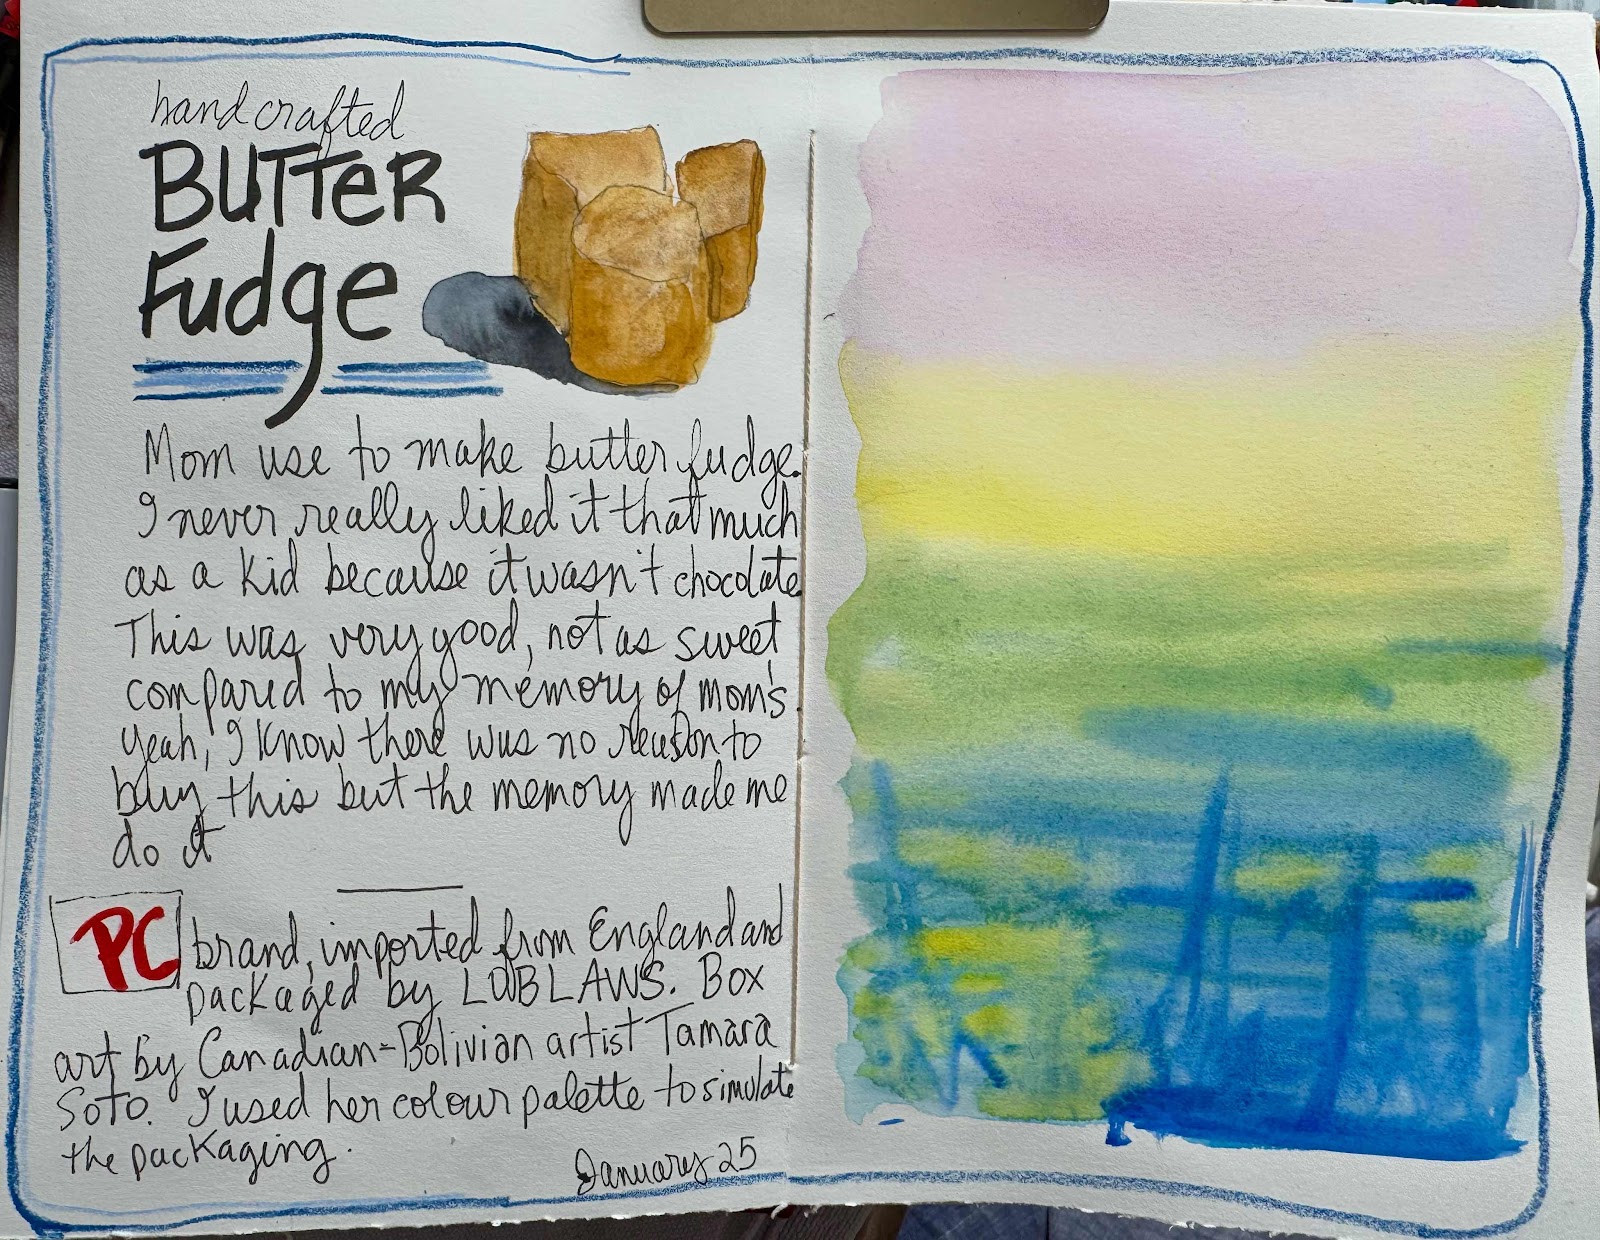 handcrafted
BUTTER
Fudge
Mom use to make butter fudge.
I never really liked it that much
as a kid because it wasn't chocolate
This was very good, not as sweet
compared to my memory of mom's.
Yeah, I know there was no reason to
buy this but the memory made me
do it
PC brand, imported from England and
packaged by LOBLAWS. Box
art by Canadian-Bolivian artist Tamara
Soto. I used her colour palette to simulate
the packaging.
January 25